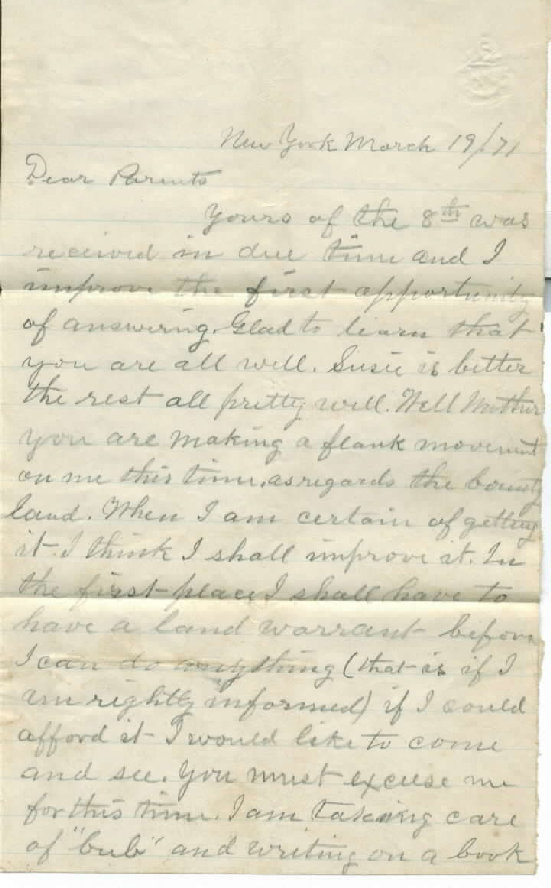 New York March 19/71
Dear Parents
Yours of the 8th was
received in due time and I
improve the first opportunity
of answering. Glad to learn that
you are all well. Susie is better
the rest all pretty well. Well Mother
you are making a flank movement
on me this time, as regards the bounty
land. When I am certain of getting
it I think I shall improve it. In
the first place I shall have to
have a land warrant before
I can do anything (that is if I
am rightly informed) if I could
afford it I would like to come
and see. You must excuse me
for this time. I am taking care
of "bub" and writing on a book